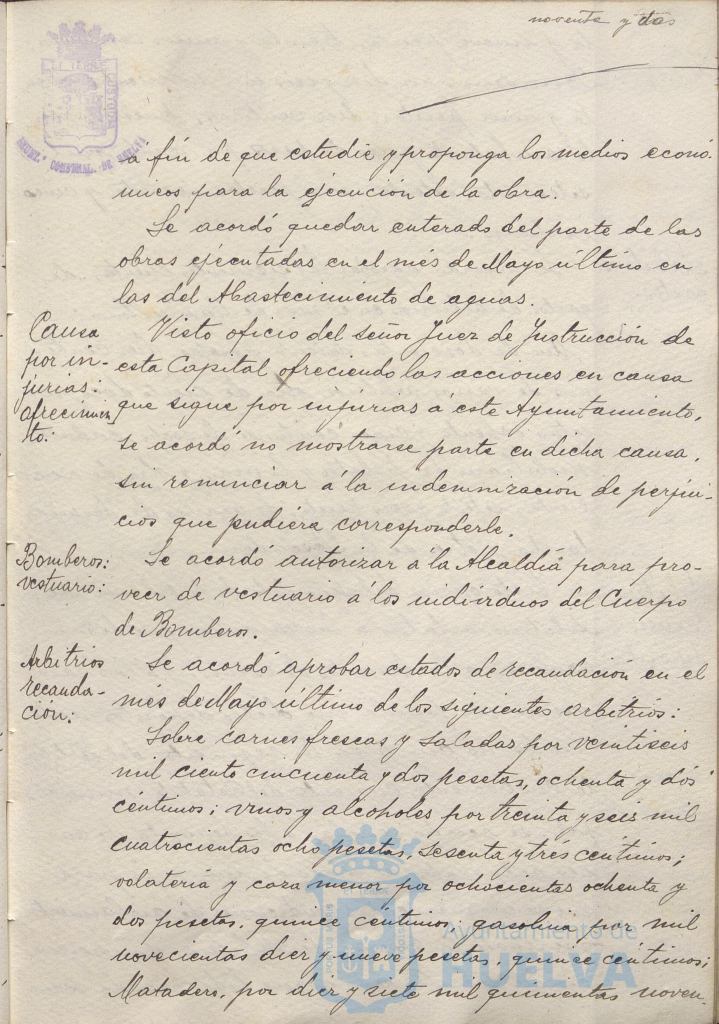 noventa y dos
á fin de que estudie y proponga los medios econó-
micos para la ejecución de la obra.
Se acordó quedar enterado del parte de las
obras ejecutadas en el més de Mayo último en
las del Abastecimiento de aguas.
Causa
por in-
jurias:
ofrecimien
to:
Visto oficio del señor Juez de Instrucción de
esta Capital ofreciendo las acciones en causa
que sigue por injurias á este Ayuntamiento,
se acordó no mostrarse parte en dicha causa,
sin renunciar á la indemnización de perjui-
cios que pudiera corresponderle.
Bomberos:
vestuario:
Se acordó autorizar á la Alcaldía para pro-
veer de vestuario á los individuos del Cuerpo
de Bomberos.
Arbitrios
recauda-
ción:
Se acordó aprobar estados de recaudación en el
més de Mayo último de los siguientes arbitrios:
Sobre carnes frescas y saladas por veintiseis
mil ciento cincuenta y dos pesetas, ochenta y dós
céntimos; vinos y alcoholes por treinta y seis mil
cuatrocientas ocho pesetas, sesenta y trés céntimos;
volateria y caza menor por ochocientas ochenta y
dos pesetas, quince céntimos; gasolina por mil
novecientas diez y nueve pesetas, quince céntimos;
Matadero, por diez y siete mil quinientas noven-
Ayuntamiento de
HUELVA